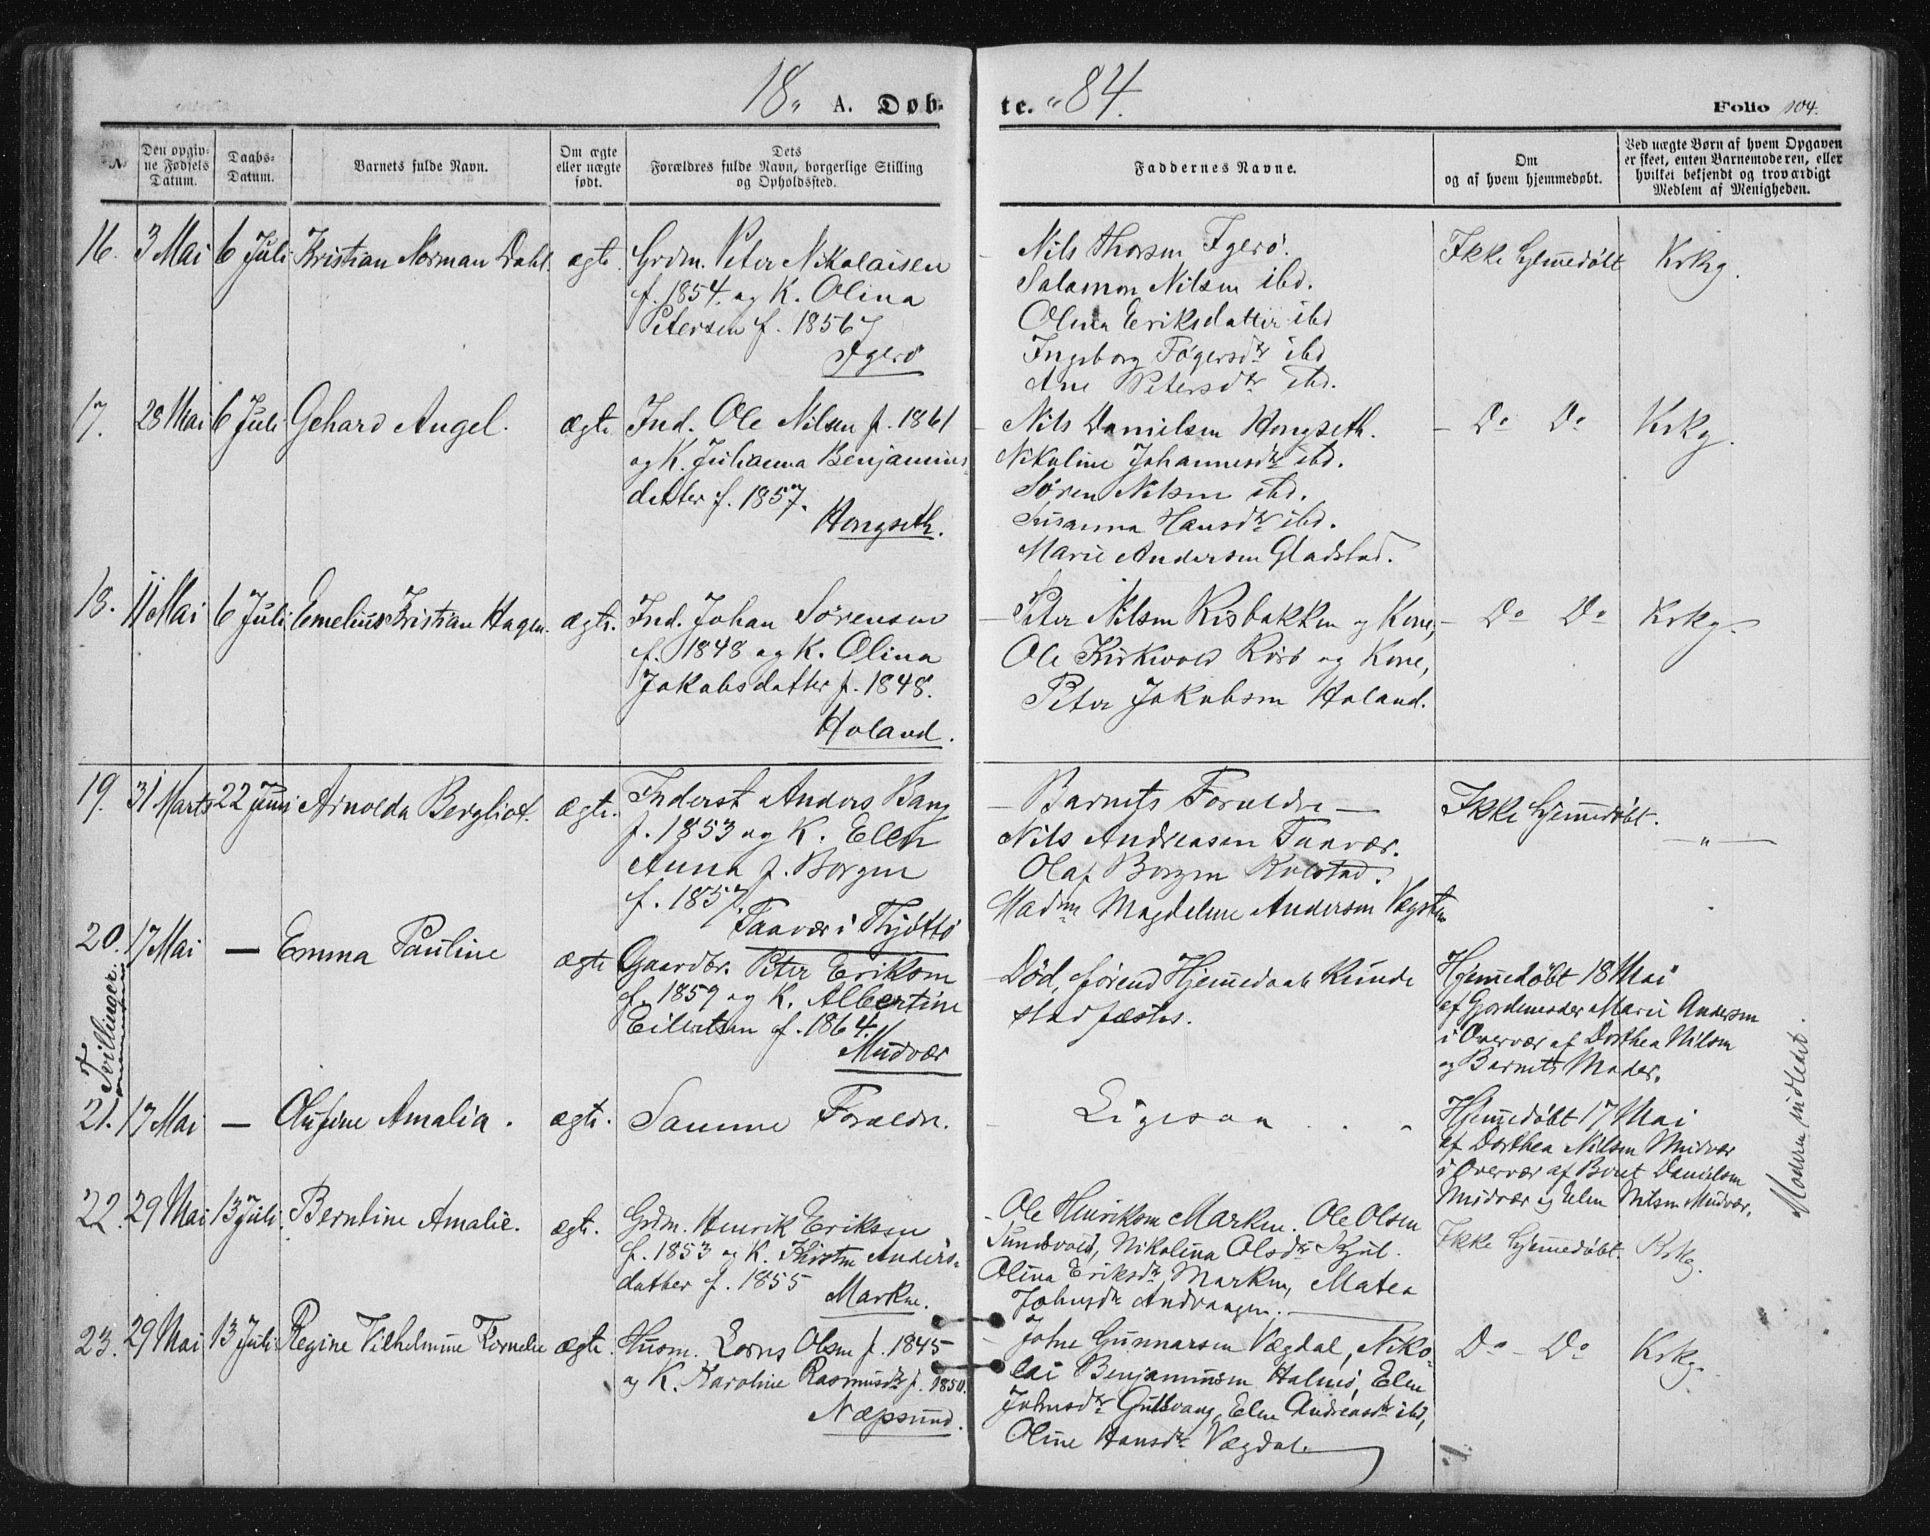 18" A. Døb-
te. "84.
Folio 104.
N.
Den opgiv-
ne Fødsels
Datum.
Daabs-
Datum.
Barnets fulde Navn.
Om ægte
eller uægte
født.
Dets
Forældres fulde Navn, borgerlige Stilling
og Opholdssted.
Faddernes Navne.
Om
og af hvem hjemmedøbt.
Ved uægte Børn af hvem Opgaven
er skeet, enten Barnemoderen, eller
hvilket bekjendt og troværdigt
Medlem af Menigheden.
16. 3 Mai 6 Juli Kristian Norman Dahl. ægte.
Grdm. Peter Nikolaisen
f. 1854. og K. Olina
Petersen f. 1856
Igerø
Nils Thorsen Igerø.
Salamon Nilsen ibd.
Olina Eriksdatter ibd
Ingeborg Tøgersdtr ibd
Ane Petersdtr ibd.
Ikke hjemmedøbt
Krkg.
17. 28 Mai 6 Juli Gehard Angel. ægte
Ind. Ole Nilsen f. 1861
og K. Julianna Benjamins
datter f. 1857.
Hongseth.
Nils Danielsen Hongseth.
Nikoline Johannesdtr ibd.
Søren Nilsen ibd.
Susanna Hansdtr ibd.
Marie Andersen Gladstad.
- Do Do
Krkg.
18. 11 Mai 6 Juli Emelius Kristian Hagen. ægte.
Ind. Johan Sørensen
f. 1848 og K. Olina
Jakobsdatter f. 1848.
Holand.
Peter Nilsen Risbakken og Kone,
Ole Kirkvold Rørø og Kone,
Peter Jakobsen Holand.
- Do Do
Krkg.
19. 31 Marts 22 Juni Arnolda Bergliot. ægte.
Inderst Anders Bang
f. 1853 og K. Elen
Anna f. Borgen
f. 1857.
Taavær i Thjøttø
- Barnets Forældre -
Nils Andreasen Taavær.
Olaf Borgen Rolstad.
Madm Magdelene Andersen Vegsten
Ikke hjemmedøbt.
- " -
20. 17 Mai - Emma Pauline ægte
Gaardbr. Peter Eriksen
f. 1859 og K. Albertine
Eilertsen f. 1864.
Mudvær
- Død, førend Hjemmedaab kunde
stadfæstes.
Hjemmedøbt 18 Mai
af Gjordemoder Marie Andersen
i Overvær af Dorthea Nilsen
og Barnets Moder.
Tvillinger.
21. 17 Mai - Olufine Amalia. ægte.
Samme Forældre.
Ligesaa
Hjemmedøbt 17 Mai
af Dorthea Nilsen Mudvær
i Overvær af Beret Danielsen
Mudvær og Elen Nilsen Mudvær.
Moderen indledet.
22. 29 Mai 13 Juli Berntine Amalie. ægte.
Grdm. Henrik Eriksen
f. 1853 og K. Kirsten Anders-
datter f. 1855
Marken.
- Ole Henriksen Marken. Ole Olsen
Sundsvold, Nikolina Olsdtr
Olina Eriksdtr Marken, Matea
Johnsdtr Andvaagen.
Ikke hjemmedøbt.
Krkg.
23. 29 Mai 13 Juli Regine Vilhelmine Kornelie ægte.
Husm. Lorns Olsen f. 1845
og K. Karoline Rasmusdtr f. 1850.
Næpsund.
- John Gunnarsen Vægdal, Niko-
lai Benjaminsen Halmø, Elen
Johnsdtr Gulsvaag, Elen Andreasdtr ibd,
Oline Hansdtr Vægdal.
Do - Do
Krkg.